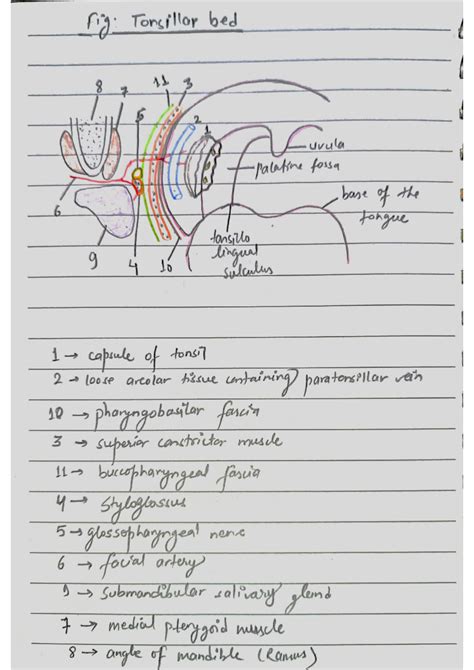 Fig: Tonsillar bed
8 7 5 11 3
2 1
uvula
palatine fossa
base of the
tongue
6
tonsillo
lingual
sulculus
9 4 10
1 → capsule of tonsil
2 → loose areolar tissue containing paratonsillar vein
10 → pharyngobasilar fascia
3 → superior constrictor muscle
11 → buccopharyngeal fascia
4 → Styloglossus
5 → glossopharyngeal nerve
6 → facial artery
9 → submandibular salivary gland
7 → medial pterygoid muscle
8 → angle of mandible (Ramus)